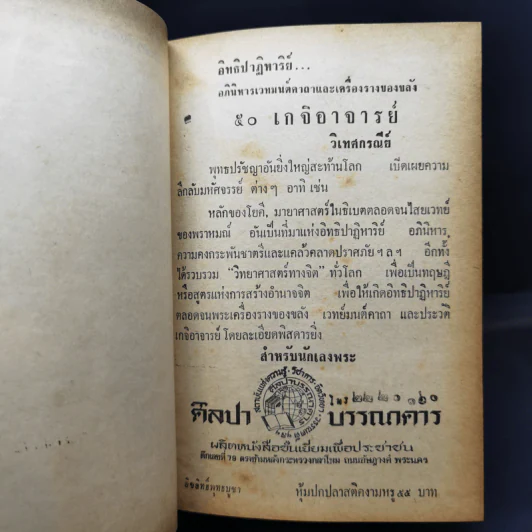 อิทธิปาฏิหาริย์...
อภินิหารเวทมนต์คาถาและเครื่องรางของขลัง
๕๐ เกจิอาจารย์
วิเทศกรณีย์
พุทธปรัชญาอันยิ่งใหญ่สะท้านโลก เปิดเผยความ
ลึกลับมหัศจรรย์ ต่างๆ อาทิ เช่น
หลักของโยคี, มายาศาสตร์ในธิเบตตลอดจนไสยเวทย์
ของพราหมณ์ อันเป็นที่มาแห่งอิทธิปาฏิหาริย์ อภินิหาร
ความคงกระพันชาตรีและแคล้วคลาดปราศภัย ฯลฯ อีกทั้ง
ได้รวบรวม "วิทยาศาสตร์ทางจิต" ทั่วโลก เพื่อเป็นทฤษฎี
หรือสูตรแห่งการสร้างอำนาจจิต เพื่อให้เกิดอิทธิปาฏิหาริย์
ตลอดจนพระเครื่องรางของขลัง เวทย์มนต์คาถา และประวัติ
เกจิอาจารย์ โดยละเอียดพิสดารยิ่ง
สำหรับนักเลงพระ
ศิลปาบรรณาคาร
โทร
ศิลปา บรรณาคาร
ผลิตหนังสือชั้นเยี่ยมเพื่อประชาชน
ตึกเลขที่ 79 ตรงข้ามหลังกระทรวงกลาโหม ถนนอัษฎางค์ พระนคร
ลิขสิทธิ์พุทธบูชา หุ้มปกปลาสติคงามหรู ๔๕ บาท